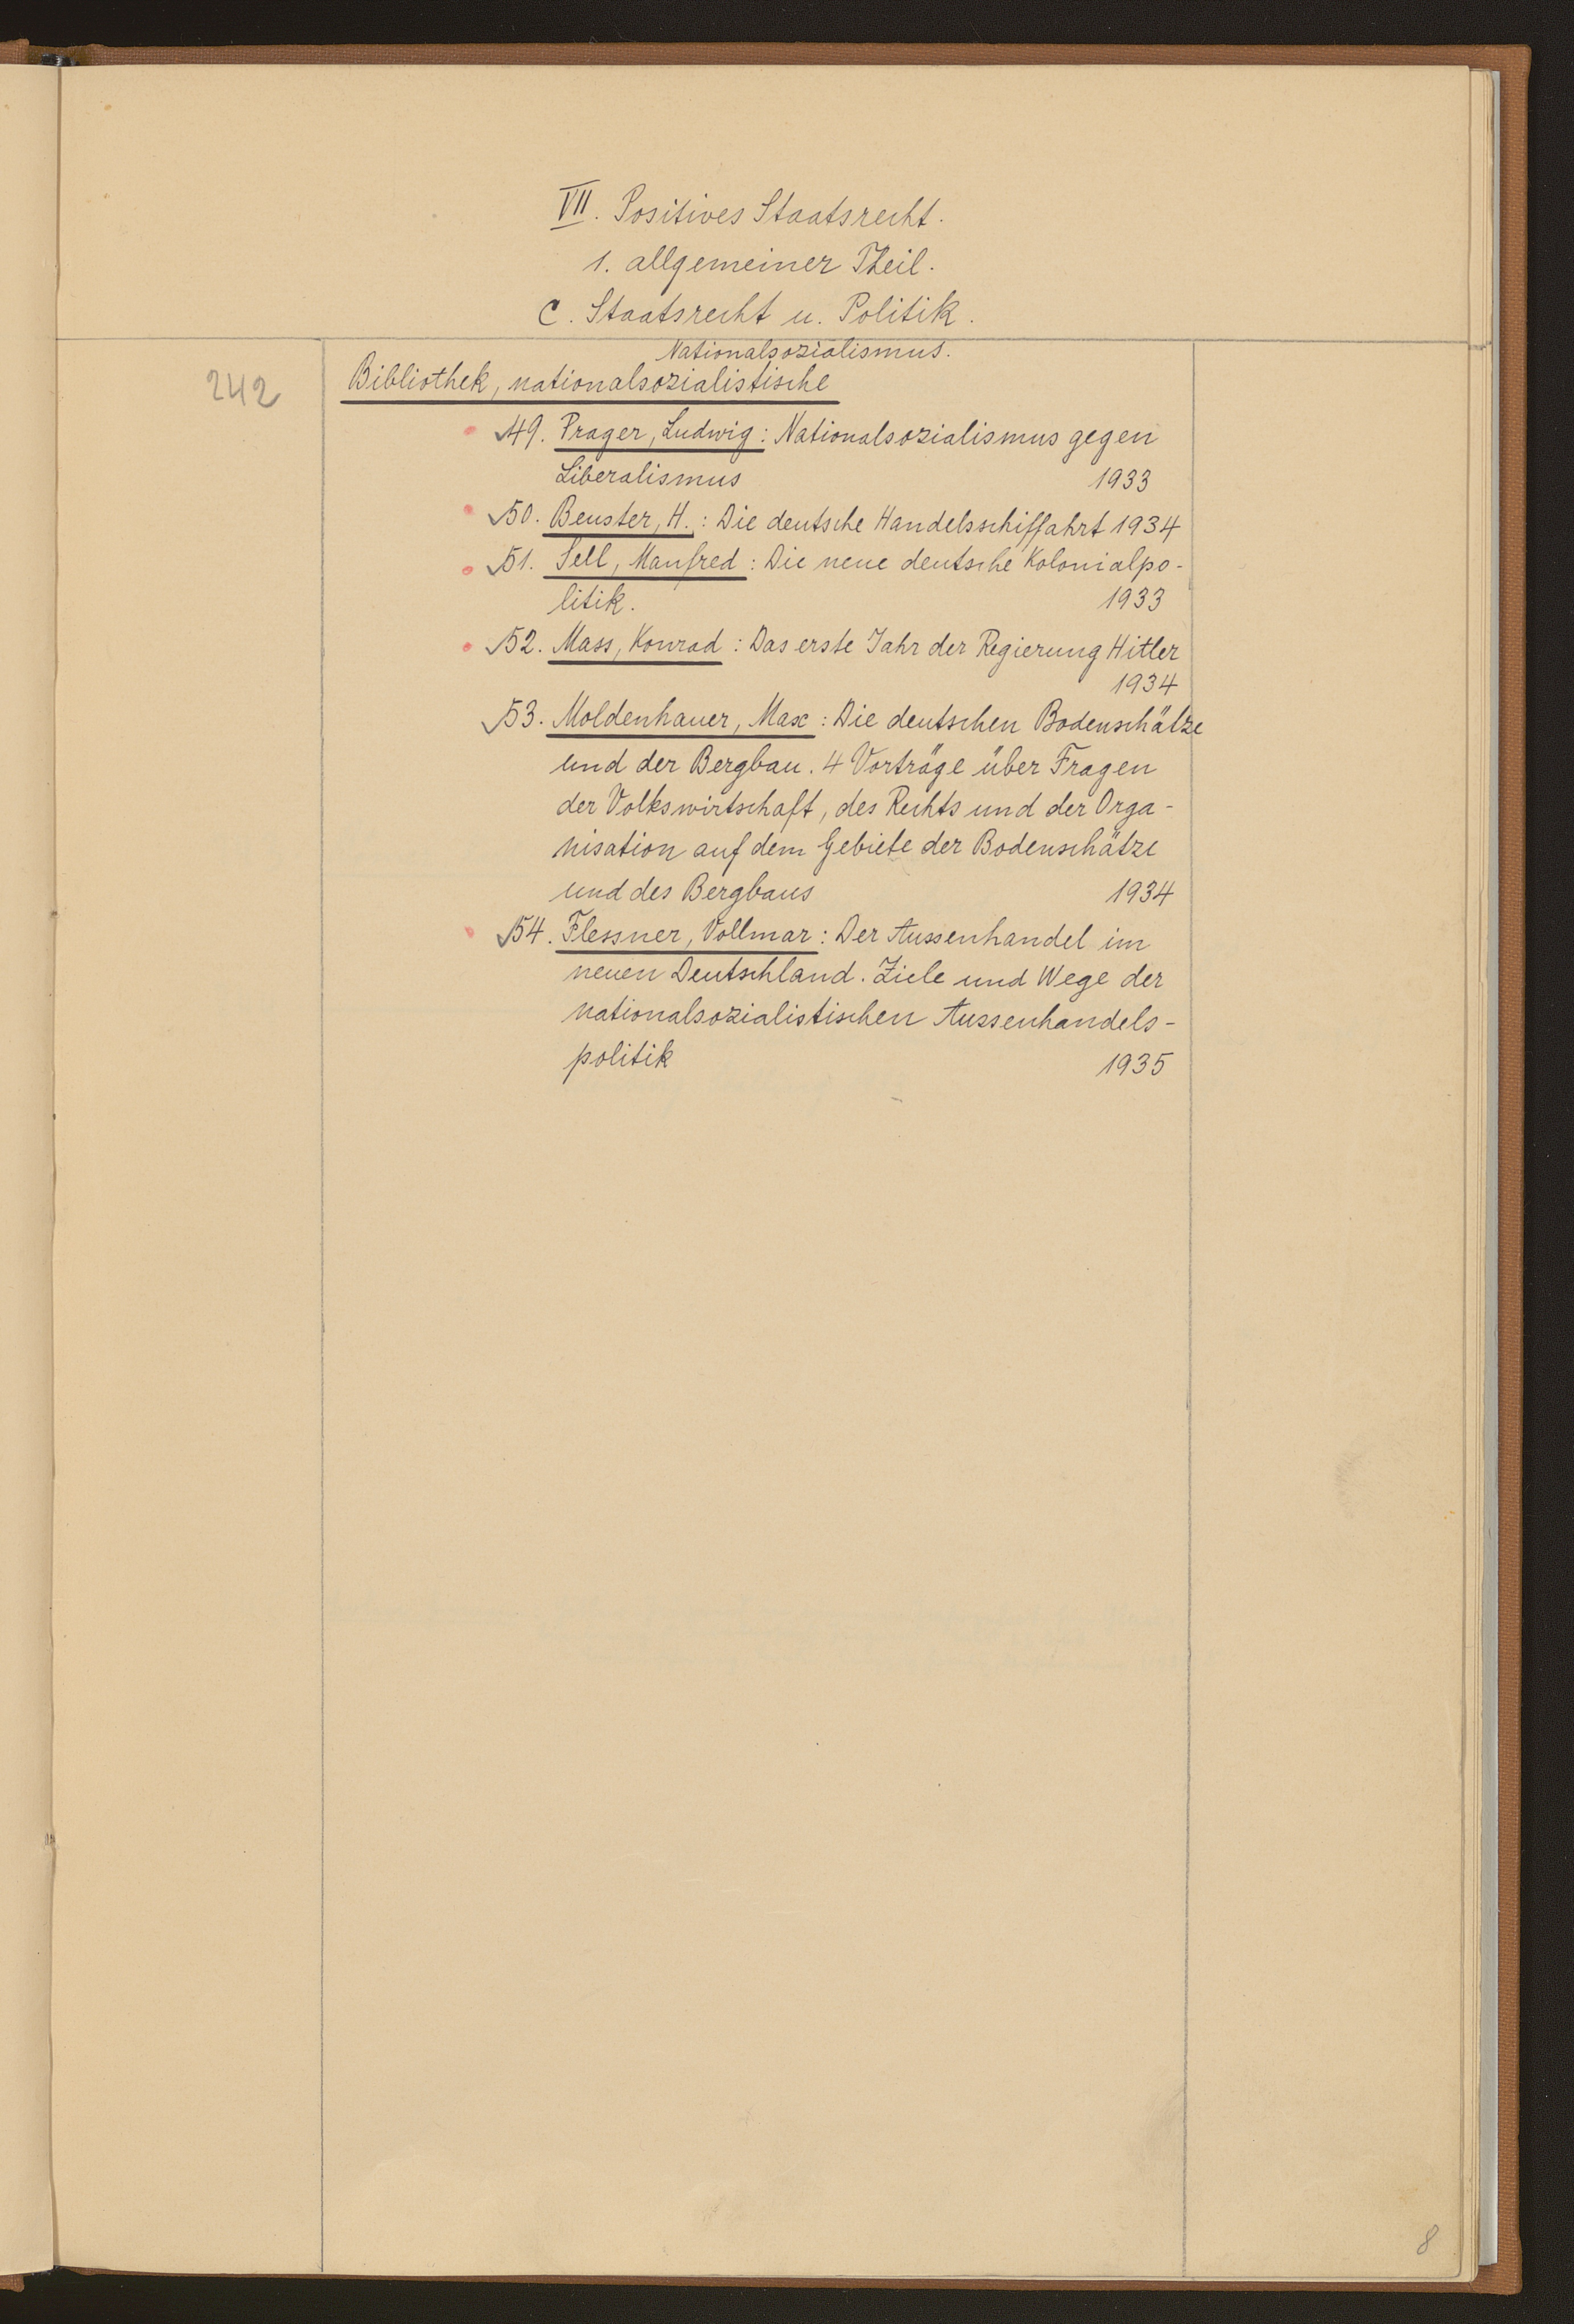 VII. Positives Staatsrecht.
1. allgemeiner Theil.
C. Staatsrecht u. Politik.
Nationalsozialismus.
242
Bibliothek, nationalsozialistische
49. Prager, Ludwig: Nationalsozialismus gegen
Liberalismus 1933
50. Beuster, H.: Die deutsche Handelsschiffahrt 1934
51. Sell, Manfred: Die neue deutsche Kolonialpo-
litik. 1933
52. Mass, Konrad: Das erste Jahr der Regierung Hitler
1934
53. Moldenhauer, Max: Die deutschen Bodenschätze
und der Bergbau. 4 Vorträge über Fragen
der Volkswirtschaft, des Rechts und der Orga-
nisation auf dem Gebiete der Bodenschätze
und des Bergbaus 1934
54. Flessner, Vollmar: Der Aussenhandel im
neuen Deutschland. Ziele und Wege der
nationalsozialistischen Aussenhandels-
politik 1935
8